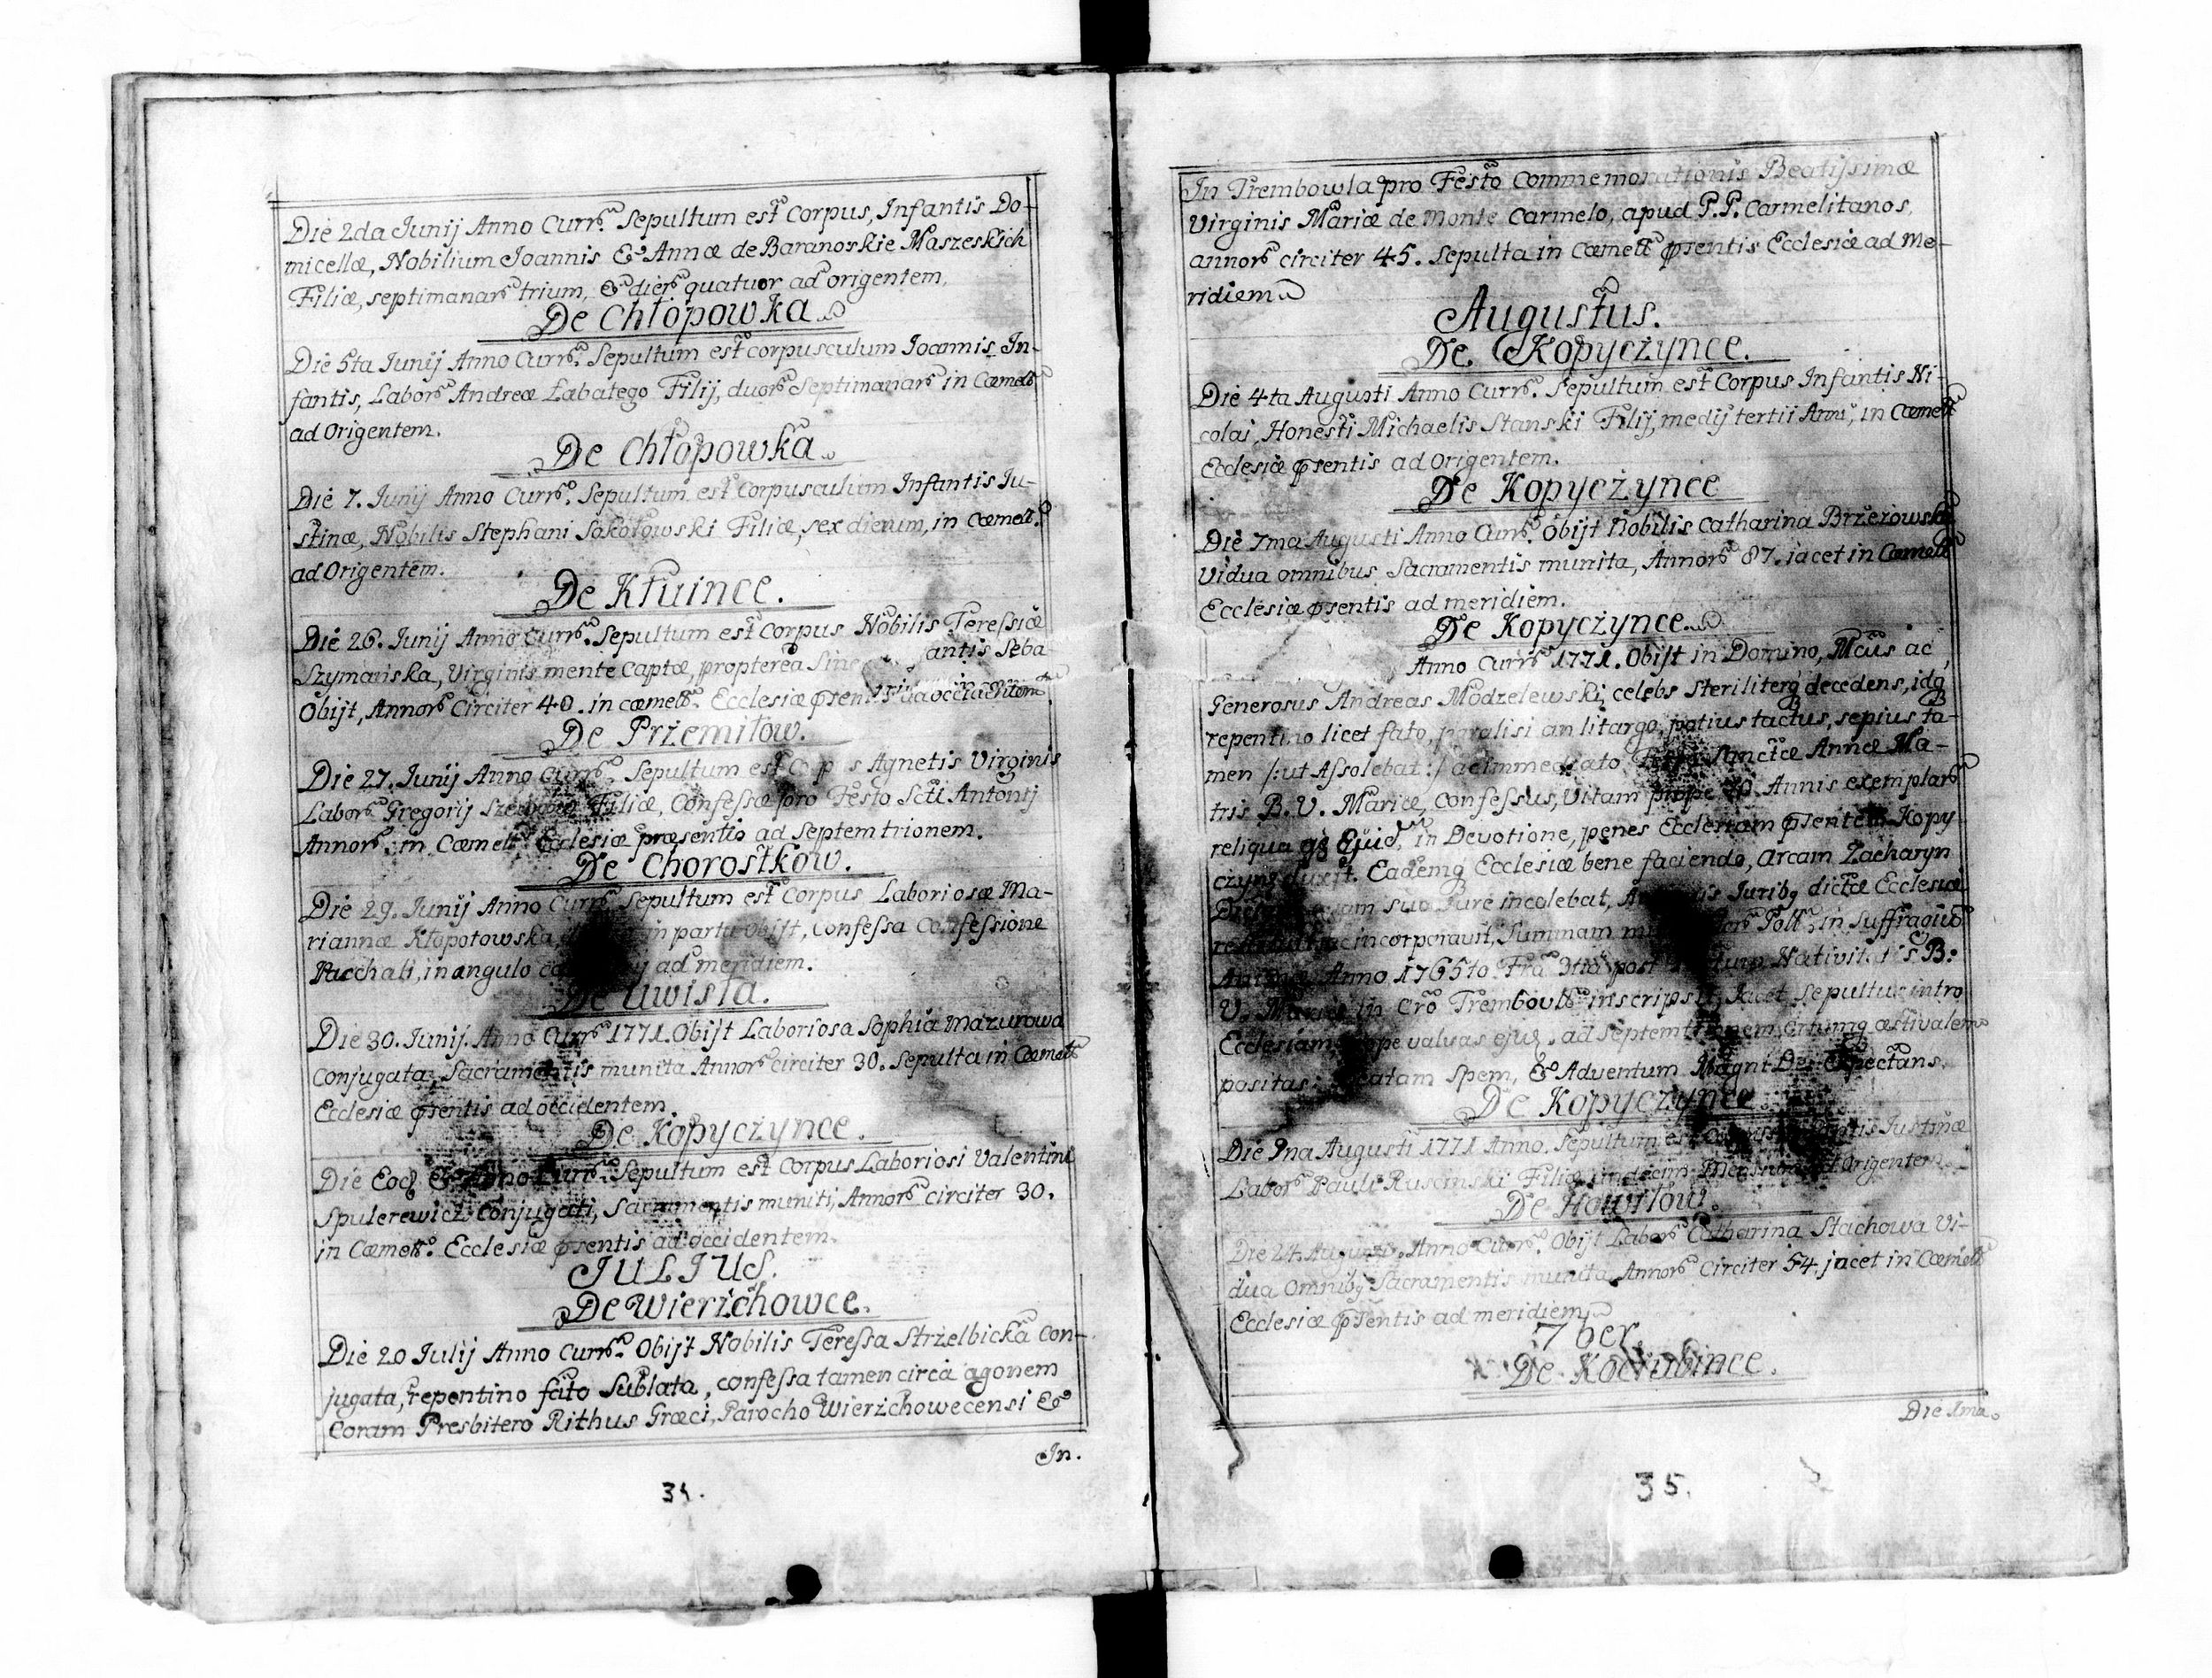 Die 2da Junij Anno Curr. Sepultum est Corpus, Infantis Do-
micellæ, Nobilium Joannis & Annæ de Baranoskie Maszeskich
Filiæ, septimanar trium, & dier quatuor ad origentem.
De Chłopowka
Die 5ta Junij Anno Curr. Sepultum est corpusculum Joannis In-
fantis, Labor Andreæ Łabatego Filij, duor Septimanar in Cæmett
ad Origentem.
De Chłopowka.
Die 7. Junij Anno Curr. Sepultum est Corpusculum Infantis Ju-
stinæ, Nobilis Stephani Sokołowski Filiæ, sex dierum, in Cæmett.
ad Origentem.
De Kłuince.
Die 26. Junij Anno Curr. Sepultum est Corpus Nobilis Teressiæ
Szymanska, Virginis mente captæ, propterea Sine antis Seba
Obijt, Annor Circiter 40. in cæmett. Ecclesiæ
De Przemiłow.
Die 27. Junij Anno Curr. Sepultum est Agnetis Virginis
Labor Gregorij Filiæ, Confessæ pro Festo Scti Antonij
Annor. in Cæmett Ecclesiæ præsentis ad Septemtrionem.
De Chorostkow.
Die 29. Junij Anno Curr Sepultum est Corpus Laboriosæ Ma-
riannæ Kłopotowska, in partu Obijt, Confessa Confessione
Paschali, in angulo ad meridiem.
De Uwisła.
Die 30. Junij. Anno Curr 1771. Obijt Laboriosa Sophia Mazurowa
Conjugata, Sacramentis munita Annor circiter 30. Sepulta in Cæmett
Ecclesiæ psentis ad occidentem.
De Kopyczynce.
Die Eod & Anno Curr. Sepultum est Corpus Laboriosi Valentini
Spulerewicz Conjugati, Sacramentis muniti, Annor circiter 30.
in Cæmett. Ecclesiæ psentis ad occidentem.
JULJUS.
De Wierzchowce.
Die 20 Julij Anno Curr. Obijt Nobilis Teressa Strzelbicka Con-
jugata, repentino fato Sublata, confessa tamen circa agonem
Coram Presbitero Rithus Græci, Parocho Wierzchowecensi &
In.
34.
In Trembowla pro Festo Commemorationis Beatissimæ
Virginis Mariæ de Monte Carmelo, apud P.P. Carmelitanos,
annor circiter 45. Sepulta in Cæmett psentis Ecclesiæ ad Me-
ridiem
Augustus.
De Kopyczynce.
Die 4ta Augusti Anno Curr. Sepultum est Corpus Infantis Ni-
colai, Honesti Michaelis Stanski Filij, medij tertii Anni, in Cæmett
Ecclesiæ psentis ad Origentem.
De Kopyczynce
Die 7ma Augusti Anno Curr. Obijt Nobilis Catharina Brzezowska
Vidua omnibus Sacramentis munita, Annor 87. iacet in Cæmett
Ecclesiæ psentis ad meridiem.
De Kopyczynce.
Anno Curr 1771. Obijt in Domino, Mcus ac
Generosus Andreas Modzelewski, celebs Steriliterq decedens, idq
repentino licet fato, paralisi an litargo, potius tactus, sepius ta-
men /: ut Assolebat :/ ac immediato Sanctæ Annæ Ma-
tris B. V. Mariæ, Confessus, Vitam prope Annis exemplar
reliqua in Devotione, penes Ecclesiam psentem Kopy-
czyn duxit. Eademq Ecclesiæ bene faciendo, Arcam Zacharyn
suo Jure incolebat, Juribq dictæ Ecclesiæ
incorporavit, Summam Poll. in Suffragiu
Anno 1765to post Nativitatis B:
V. Mariæ in Cro Trembowl inscripsit, Jacet Sepultus intro
Ecclesiam prope valvas ejus, ad Septemtrionem, Ortumq æstivalem
positas. Beatam Spem, & Adventum Magni Dei Expectans.
De Kopyczynce.
Die 9na Augusti 1771 Anno. Sepultum est Justinæ
Labor Pauli Rusinski Filiæ undecim Mensium ad Origentem.
De Howiłow.
Die 24. Augusti. Anno Curr. Obijt Labor Catharina Stachowa Vi-
dua Omnibq Sacramentis munita Annor Circiter 54. jacet in Cæmett
Ecclesiæ psentis ad meridiem
7ber.
De Kociubince.
Die 1ma.
35.